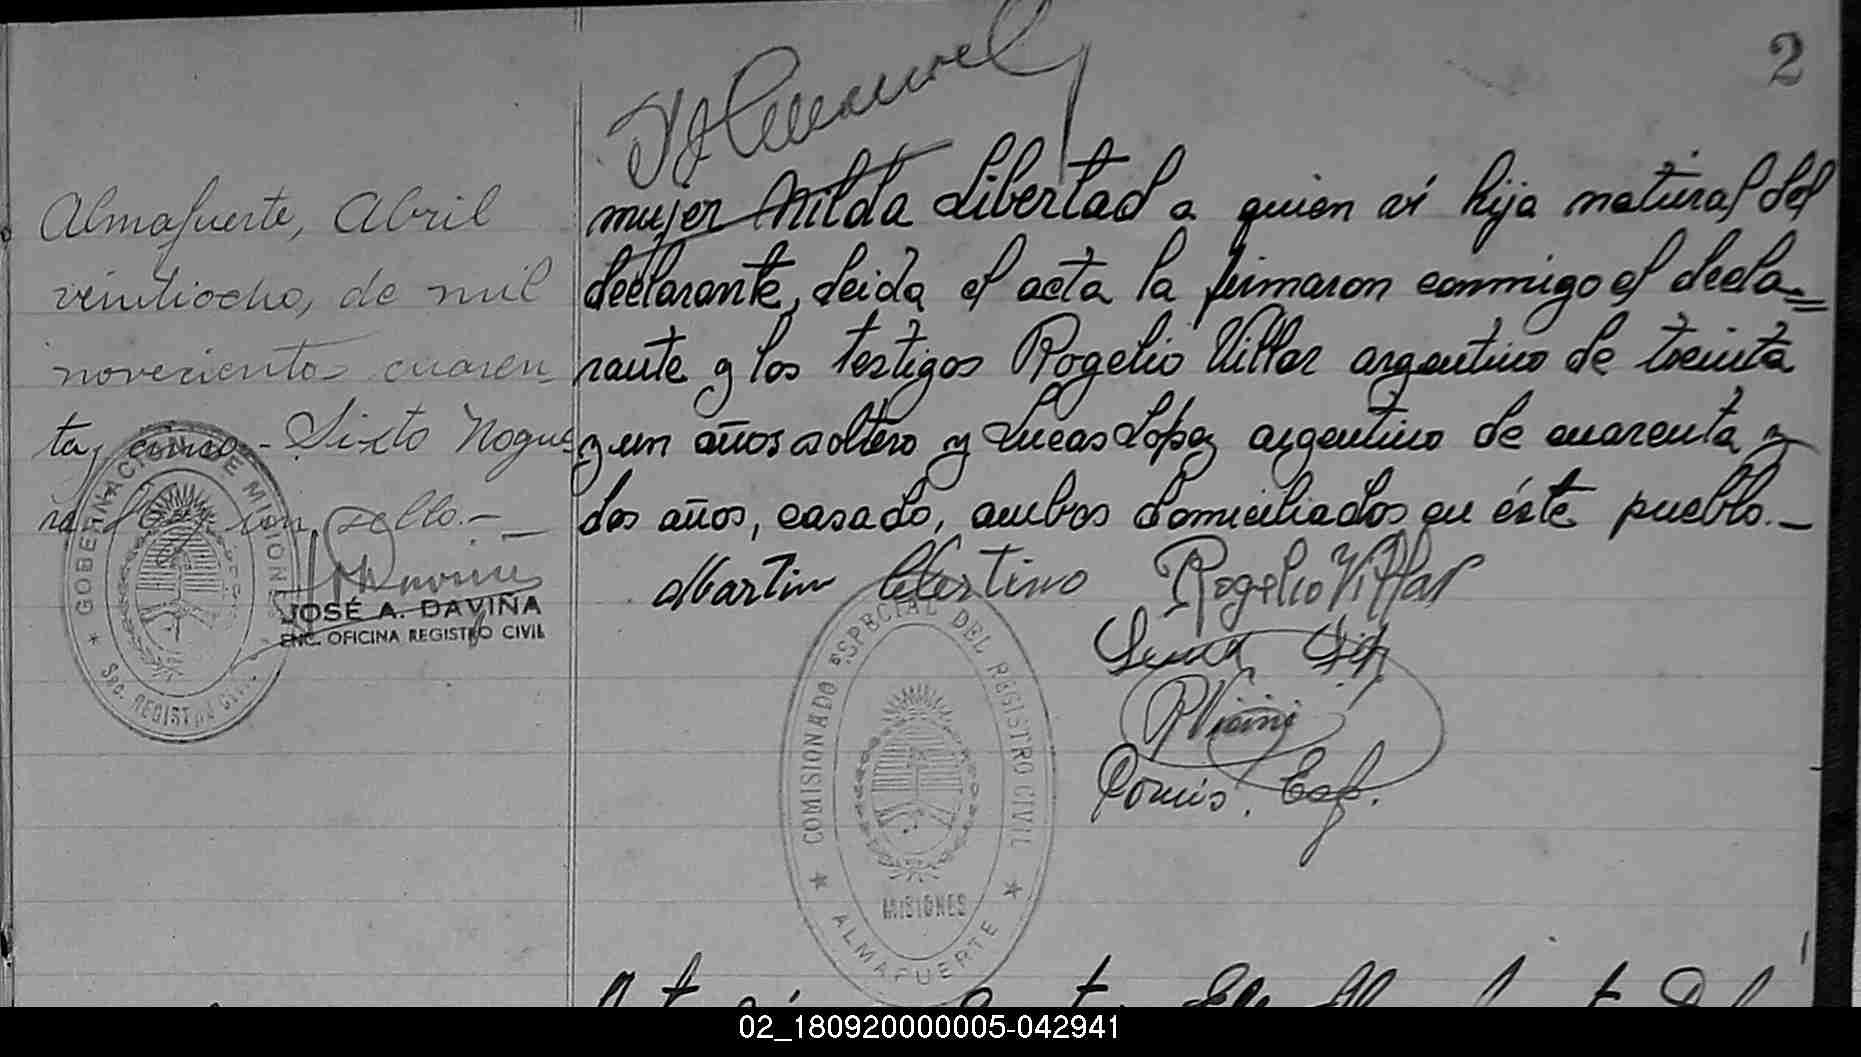 2
Almafuerte, Abril
veintiocho, de mil
novecientos cuaren-
ta y cinco.- Sixto Nogue-
ra con sello.-
JOSÉ A. DAVIÑA
ENC. OFICINA REGISTRO CIVIL
GOBERNACION DE MISIONES
Sec. REGISTRO CIVIL
mujer Nilda Libertad a quien vi hija natural del
declarante, leida el acta la firmaron conmigo el decla-
rante y los testigos Rogelio Villar argentino de treinta
y un años soltero y Lucas López argentino de cuarenta y
dos años, casado, ambos domiciliados en éste pueblo.-
Martin Celestino Rogelio Villar
Comis. Esp.
COMISIONADO ESPECIAL DEL REGISTRO CIVIL
MISIONES
ALMAFUERTE
02_180920000005-042941